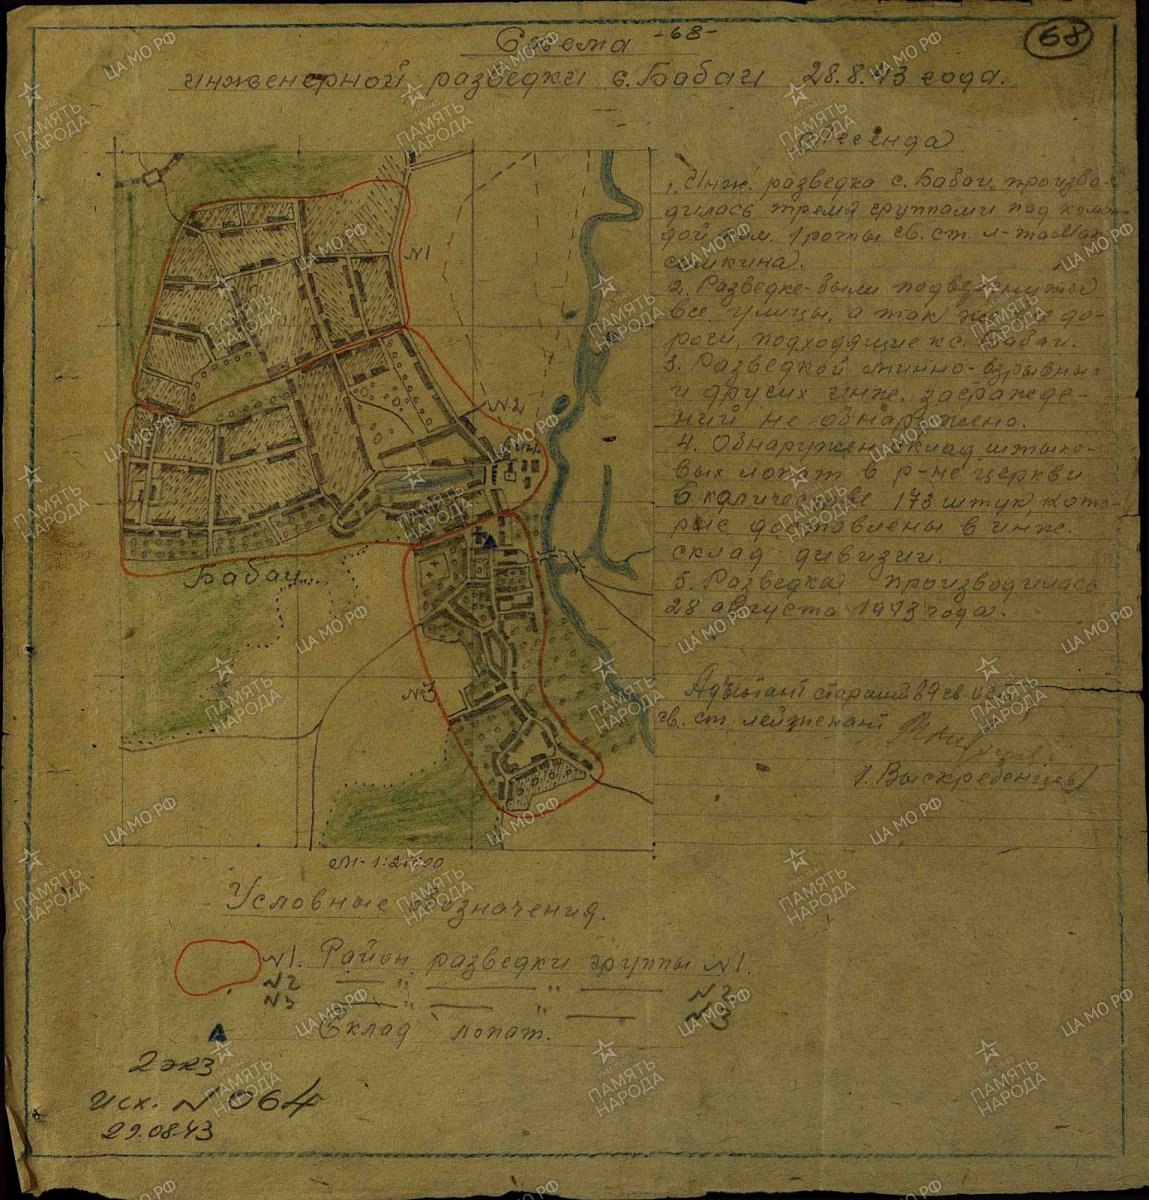 Схема -68-
68
инженерной разведки с. Бабаи 28.8.43 года.
Легенда
1. Инж. разведка с. Бабаи произво-
дилась тремя группами под коман-
дой ком. 1 роты гв. ст. л-та
2. Разведке были подвергнуты
все улицы, а так же и до-
роги, подходящие к с. Бабаи.
3. Разведкой минно-взрывных
и других инж. загражде-
ний не обнаружено.
4. Обнаружен склад штыко-
вых лопат в р-не церкви
в количестве 173 штук, кото-
рые доставлены в инж.
склад дивизии.
5. Разведка производилась
28 августа 1943 года.
Адъютант старший 89 гв.
гв. ст. лейтенант
/. Выскребенцев/
N1
N2
Бабаи
N3
М-1:25000
Условные обозначения.
N1. Район разведки группы N1.
N2 — " — " — N2
N3 — " — " — N3
Склад лопат.
2 экз
Исх. N 064
29.08.43
ЦА МО РФ
ПАМЯТЬ
НАРОДА